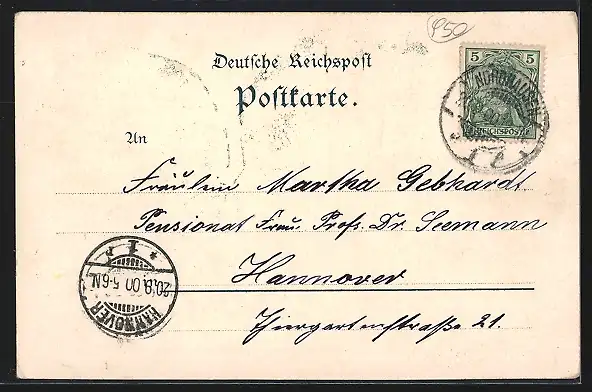 950
Deutsche Reichspost
Postkarte.
5 5
NORDHAUSEN
REICHSPOST
An
Fräulein Martha Gebhardt
Pensionat Frau Profs. Dr. Seemann
Hannover
Thiergartenstraße 21.
HANNOVER
20.9.00.5-6N.
* 1 P